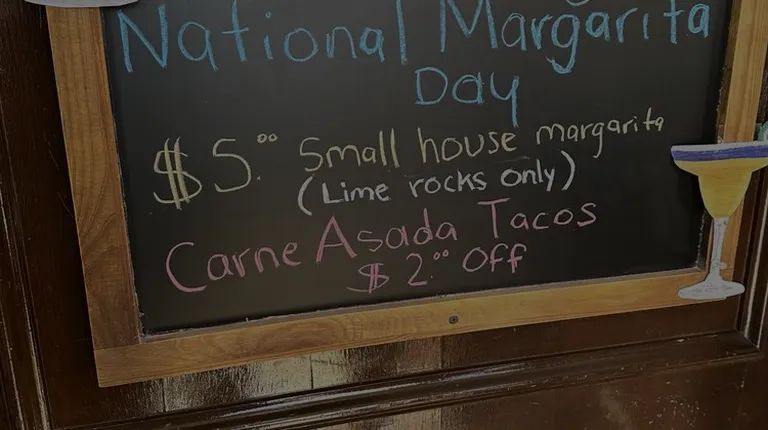 National Margarita
Day
$5.00 Small house margarita
(Lime rocks only)
Carne Asada Tacos
$2.00 Off